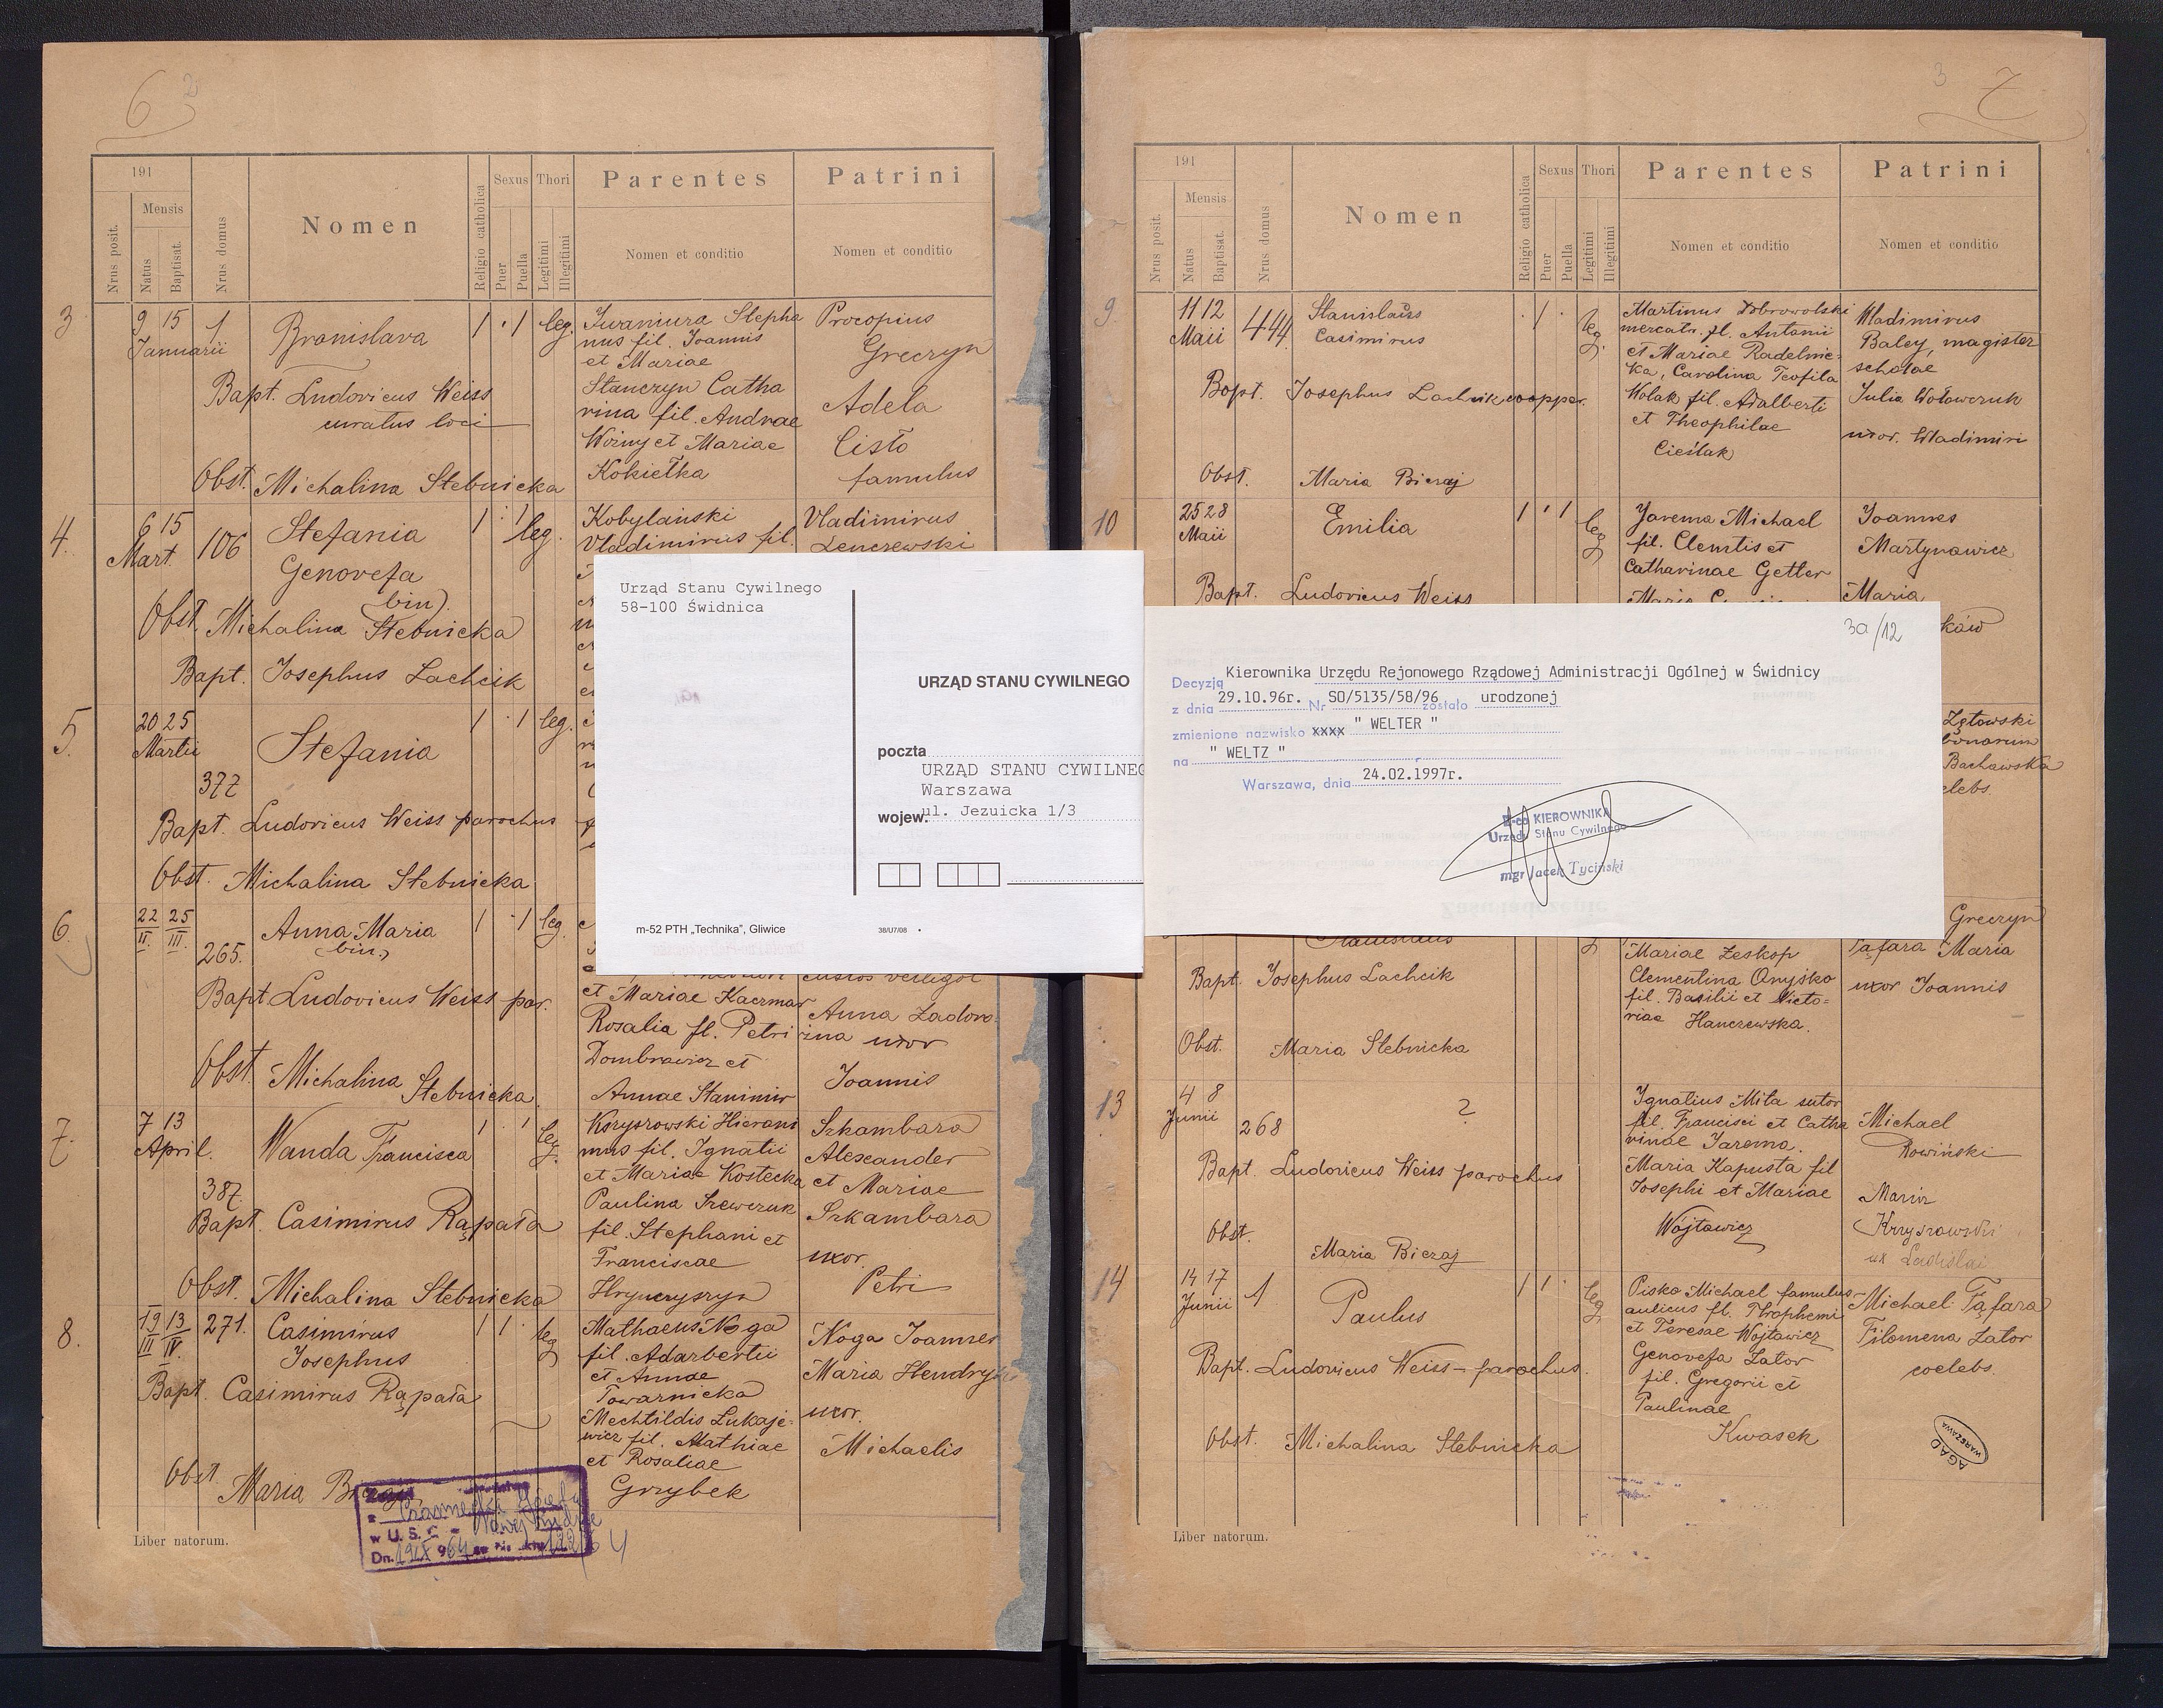 6 2
191
Mensis
Nrus posit.
Natus
Baptisat.
Nrus domus
Nomen
Religio catholica
Sexus
Puer
Puella
Thori
Legitimi
Illegitimi
Parentes
Nomen et conditio
Patrini
Nomen et conditio
3
9 15
Januarii
1
Bronislava
1 · 1 leg.
Stepha
nus fil. Joannis
et Mariae
Stanczyn Catha
rina fil. Andreae
Woźny et Mariae
Kokiełka
Procopius
Greczyn
Adela
Cisło
famulus
Bapt. Ludovicus Weiss
curatus loci
Obst. Michalina Stebnicka
4.
6 15
Mart.
106
Stefania
Genovefa
(bin).
1 · 1 leg.
Kobylański
Vladimirus fil.
Vladimirus
Lenczewski
Obst. Michalina Stebnicka
Bapt. Josephus Lachcik
5.
20 25
Martii
377
Stefania
1 · 1 leg.
Bapt. Ludovicus Weiss parochus
Obst. Michalina Stebnicka
6.
22 25
II. III.
265.
Anna Maria
(bin)
1 · 1 leg.
et Mariae Kaczmar
Rosalia fl. Petri
Dombrowicz et
Annae Stanimir
Anna Zadoro
żna uxor
Joannis
Bapt. Ludovicus Weiss par.
Obst. Michalina
Stebnicka.
7.
7 13
April.
387.
Wanda Francisca
1 · 1 leg.
Krzyszowski Hieroni
mus fil. Ignatii
et Mariae Kostecka
Paulina Szewczuk
fil. Stephani et
Franciscae
Hryncyszyn
Szkambara
Alexander
et Mariae
Szkambara
uxor.
Petri
Bapt. Casimirus Rąpała
Obst. Michalina Stebnicka
8.
19 13
III IV.
271.
Casimirus
Josephus
1 1 · leg
Mathaeus Noga
fil. Adarbertii
et Annae
Towarnicka
Mechtildis Lukaje-
wicz fil. Mathiae
et Rosaliae
Grzybek
Noga Joannes
Maria Hendry
uxor.
Michaelis
Bapt. Casimirus Rąpała
Obst. Maria
w U. S. C.
Dn.
Liber natorum.
Urząd Stanu Cywilnego
58-100 Świdnica
URZĄD STANU CYWILNEGO
poczta
URZĄD STANU CYWILNEG
Warszawa
wojew. ul. Jezuicka 1/3
m-52 PTH „Technika”, Gliwice
38/U7/08
3 7
191
Mensis
Nrus posit.
Natus
Baptisat.
Nrus domus
Nomen
Religio catholica
Sexus
Puer
Puella
Thori
Legitimi
Illegitimi
Parentes
Nomen et conditio
Patrini
Nomen et conditio
9.
11 12
Maii
444
Stanislaus
Casimirus
· 1 · leg.
Martinus Dobrowolski
mercator. fl. Antonii
et Mariae Radelnic-
ka, Carolina Teofila
Wolak fil. Adalberti
et Theophilae
Cieślak
Wladimirus
Baley, magister
scholae
Julia Wołowczuk
uxor. Wladimiri
Bapt. Josephus Lachcik cooper.
Obst. Maria Bieraj
10
25 28
Maii
Emilia
1 · 1 leg
Jarema Michael
fil. Clemtis et
Catharinae Getter
Joannes
Martynowicz
Maria
ków
Bapt. Ludovicus Weiss
3a/12
Kierownika Urzędu Rejonowego Rządowej Administracji Ogólnej w Świdnicy
Decyzją
z dnia 29.10.96r. Nr SO/5135/58/96 zostało urodzonej
zmienione nazwisko xxxx " WELTER "
na " WELTZ "
Warszawa, dnia 24.02.1997r.
Z-ca KIEROWNIKA
Urzędu Stanu Cywilnego
mgr Jacek Tyciński
Zętowski
Bachowska
Greczyn
Stanislaus
Mariae Zeskop
Clementina Onyśko
fil. Basilii et Victo=
riae Hanczewska.
Fąfara Maria
uxor Joannis
Bapt. Josephus Lachcik
Obst. Maria Stebnicka
13
4 8
Junii
268
?
Ignatius Mila sutor
fil. Francisci et Catha
rinae Jarema.
Maria Kapusta fil
Josephi et Mariae
Wójtowicz
Michael
Rowiński
Maria
Krzyszowski
ux Ladislai
Bapt. Ludovicus Weiss parochus
Obst. Maria Bieraj
14
14 17
Junii
1
Paulus
1 1 · leg
Pisko Michael famulus
aulicus fl. Throphemi
et Teresae Wojtowicz
Genovefa Zator
fil. Gregorii et
Paulinae
Kwasek
Michael Fąfara
Filomena Zator
coelebs.
Bapt. Ludovicus Weiss - parochus.
Obst. Michalina Stebnicka
AGAD
WARSZAWA
Liber natorum.